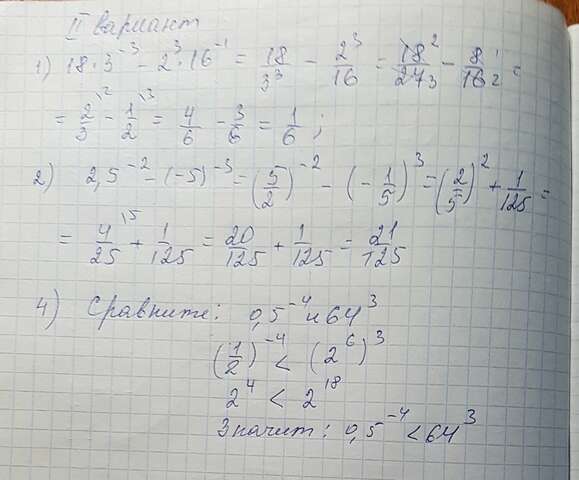 II вариант
1) 18·3⁻³ − 2³·16⁻¹ = 18/3³ − 2³/16 = 18²/27₃ − 8¹/16₂ =
= 2\²/3 − 1\³/2 = 4/6 − 3/6 = 1/6 ;
2) 2,5⁻² − (−5)⁻³ = (5/2)⁻² − (−1/5)³ = (2/5)² + 1/125 =
= 4\⁵/25 + 1/125 = 20/125 + 1/125 = 21/125
4) Сравните: 0,5⁻⁴ и 64³
(1/2)⁻⁴ < (2⁶)³
2⁴ < 2¹⁸
Значит: 0,5⁻⁴ < 64³